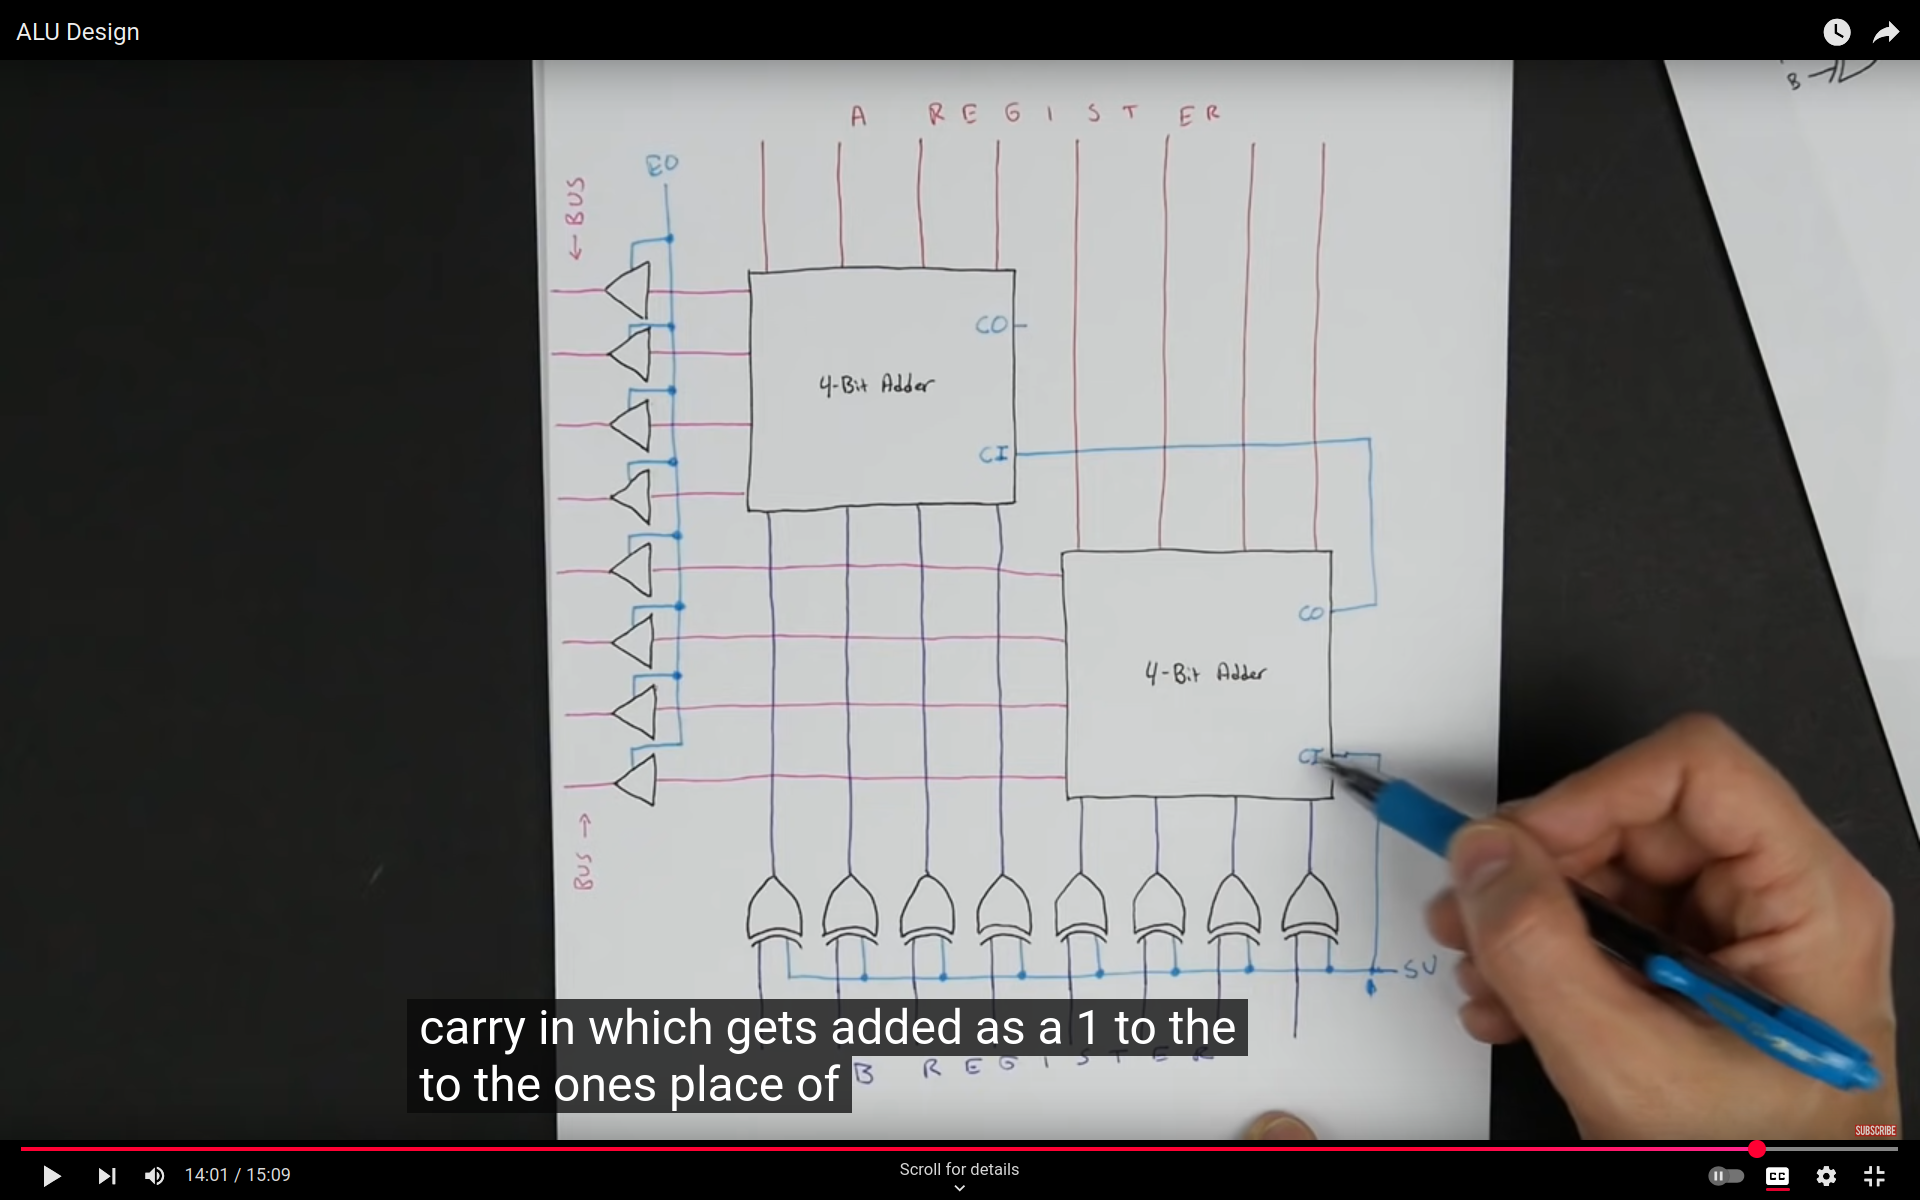 ALU Design
A REGISTER
EO
← BUS
CO
4-Bit Adder
CI
CO
4-Bit Adder
CI
BUS →
SU
carry in which gets added as a 1 to the
to the ones place of
B REGISTER
SUBSCRIBE
14:01 / 15:09
Scroll for details
CC